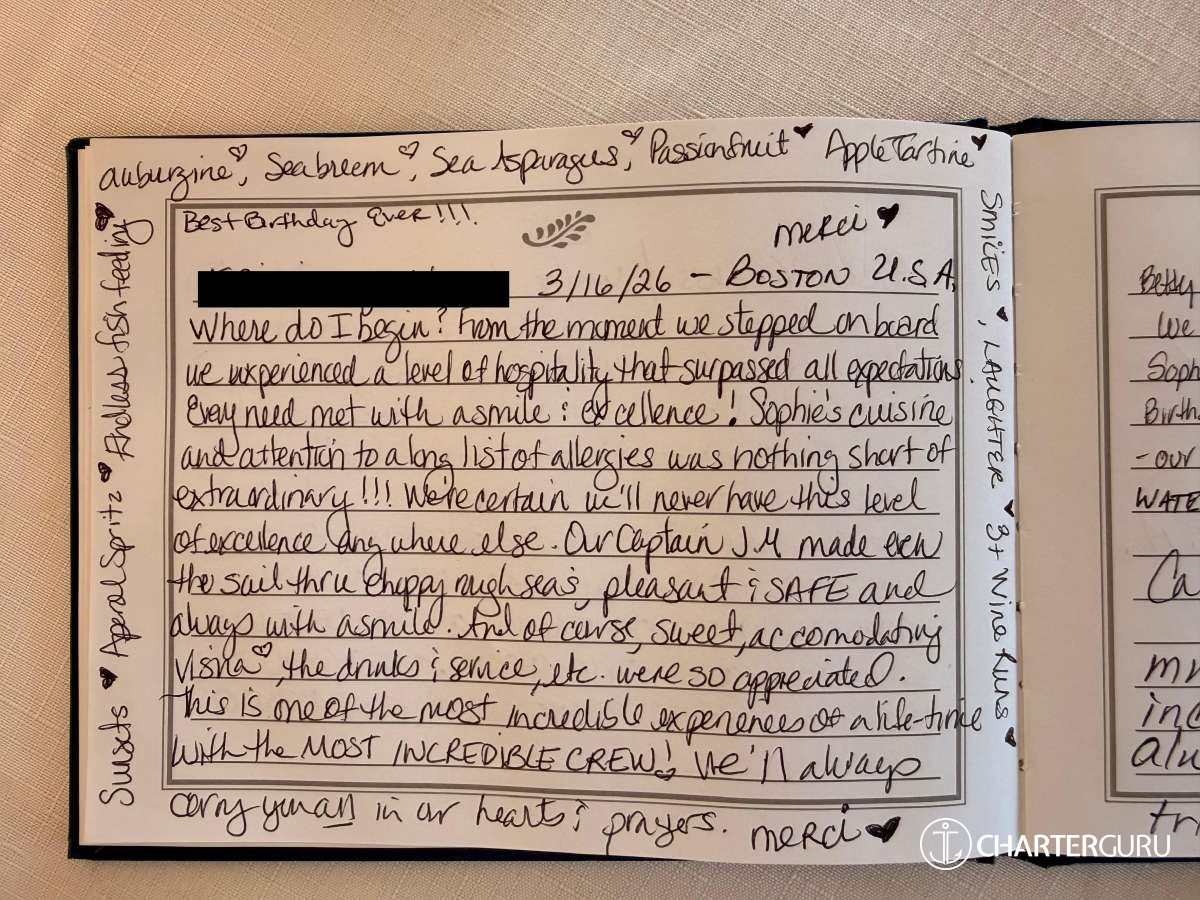 auburzine, Seabreem, Sea Asparagus, Passionfruit Apple Tartine
Best Birthday Ever!!!
merci
3/16/26 - BOSTON U.S.A.
Where do I begin? From the moment we stepped on board
we experienced a level of hospitality that surpassed all expectations.
Every need met with a smile & excellence! Sophie's cuisine
and attention to a long list of allergies was nothing short of
extraordinary!!! We're certain we'll never have this level
of excellence anywhere else. Our Captain J.M made even
the sail thru choppy rough seas, pleasant & SAFE and
always with a smile. And of course, sweet, accomodating
Visna, the drinks & service, etc. were so appreciated.
This is one of the most incredible experiences of a life-time
with the MOST INCREDIBLE CREW! We'll always
carry you all in our hearts & prayers. merci
Sunsets Apperal Spritz Endless fish feeding
SMILES, LAUGHTER 3+ Wine Runs
Betty
We
Soph
Birth
- our
WATE
Ca
my
inc
alw
tr
CHARTERGURU